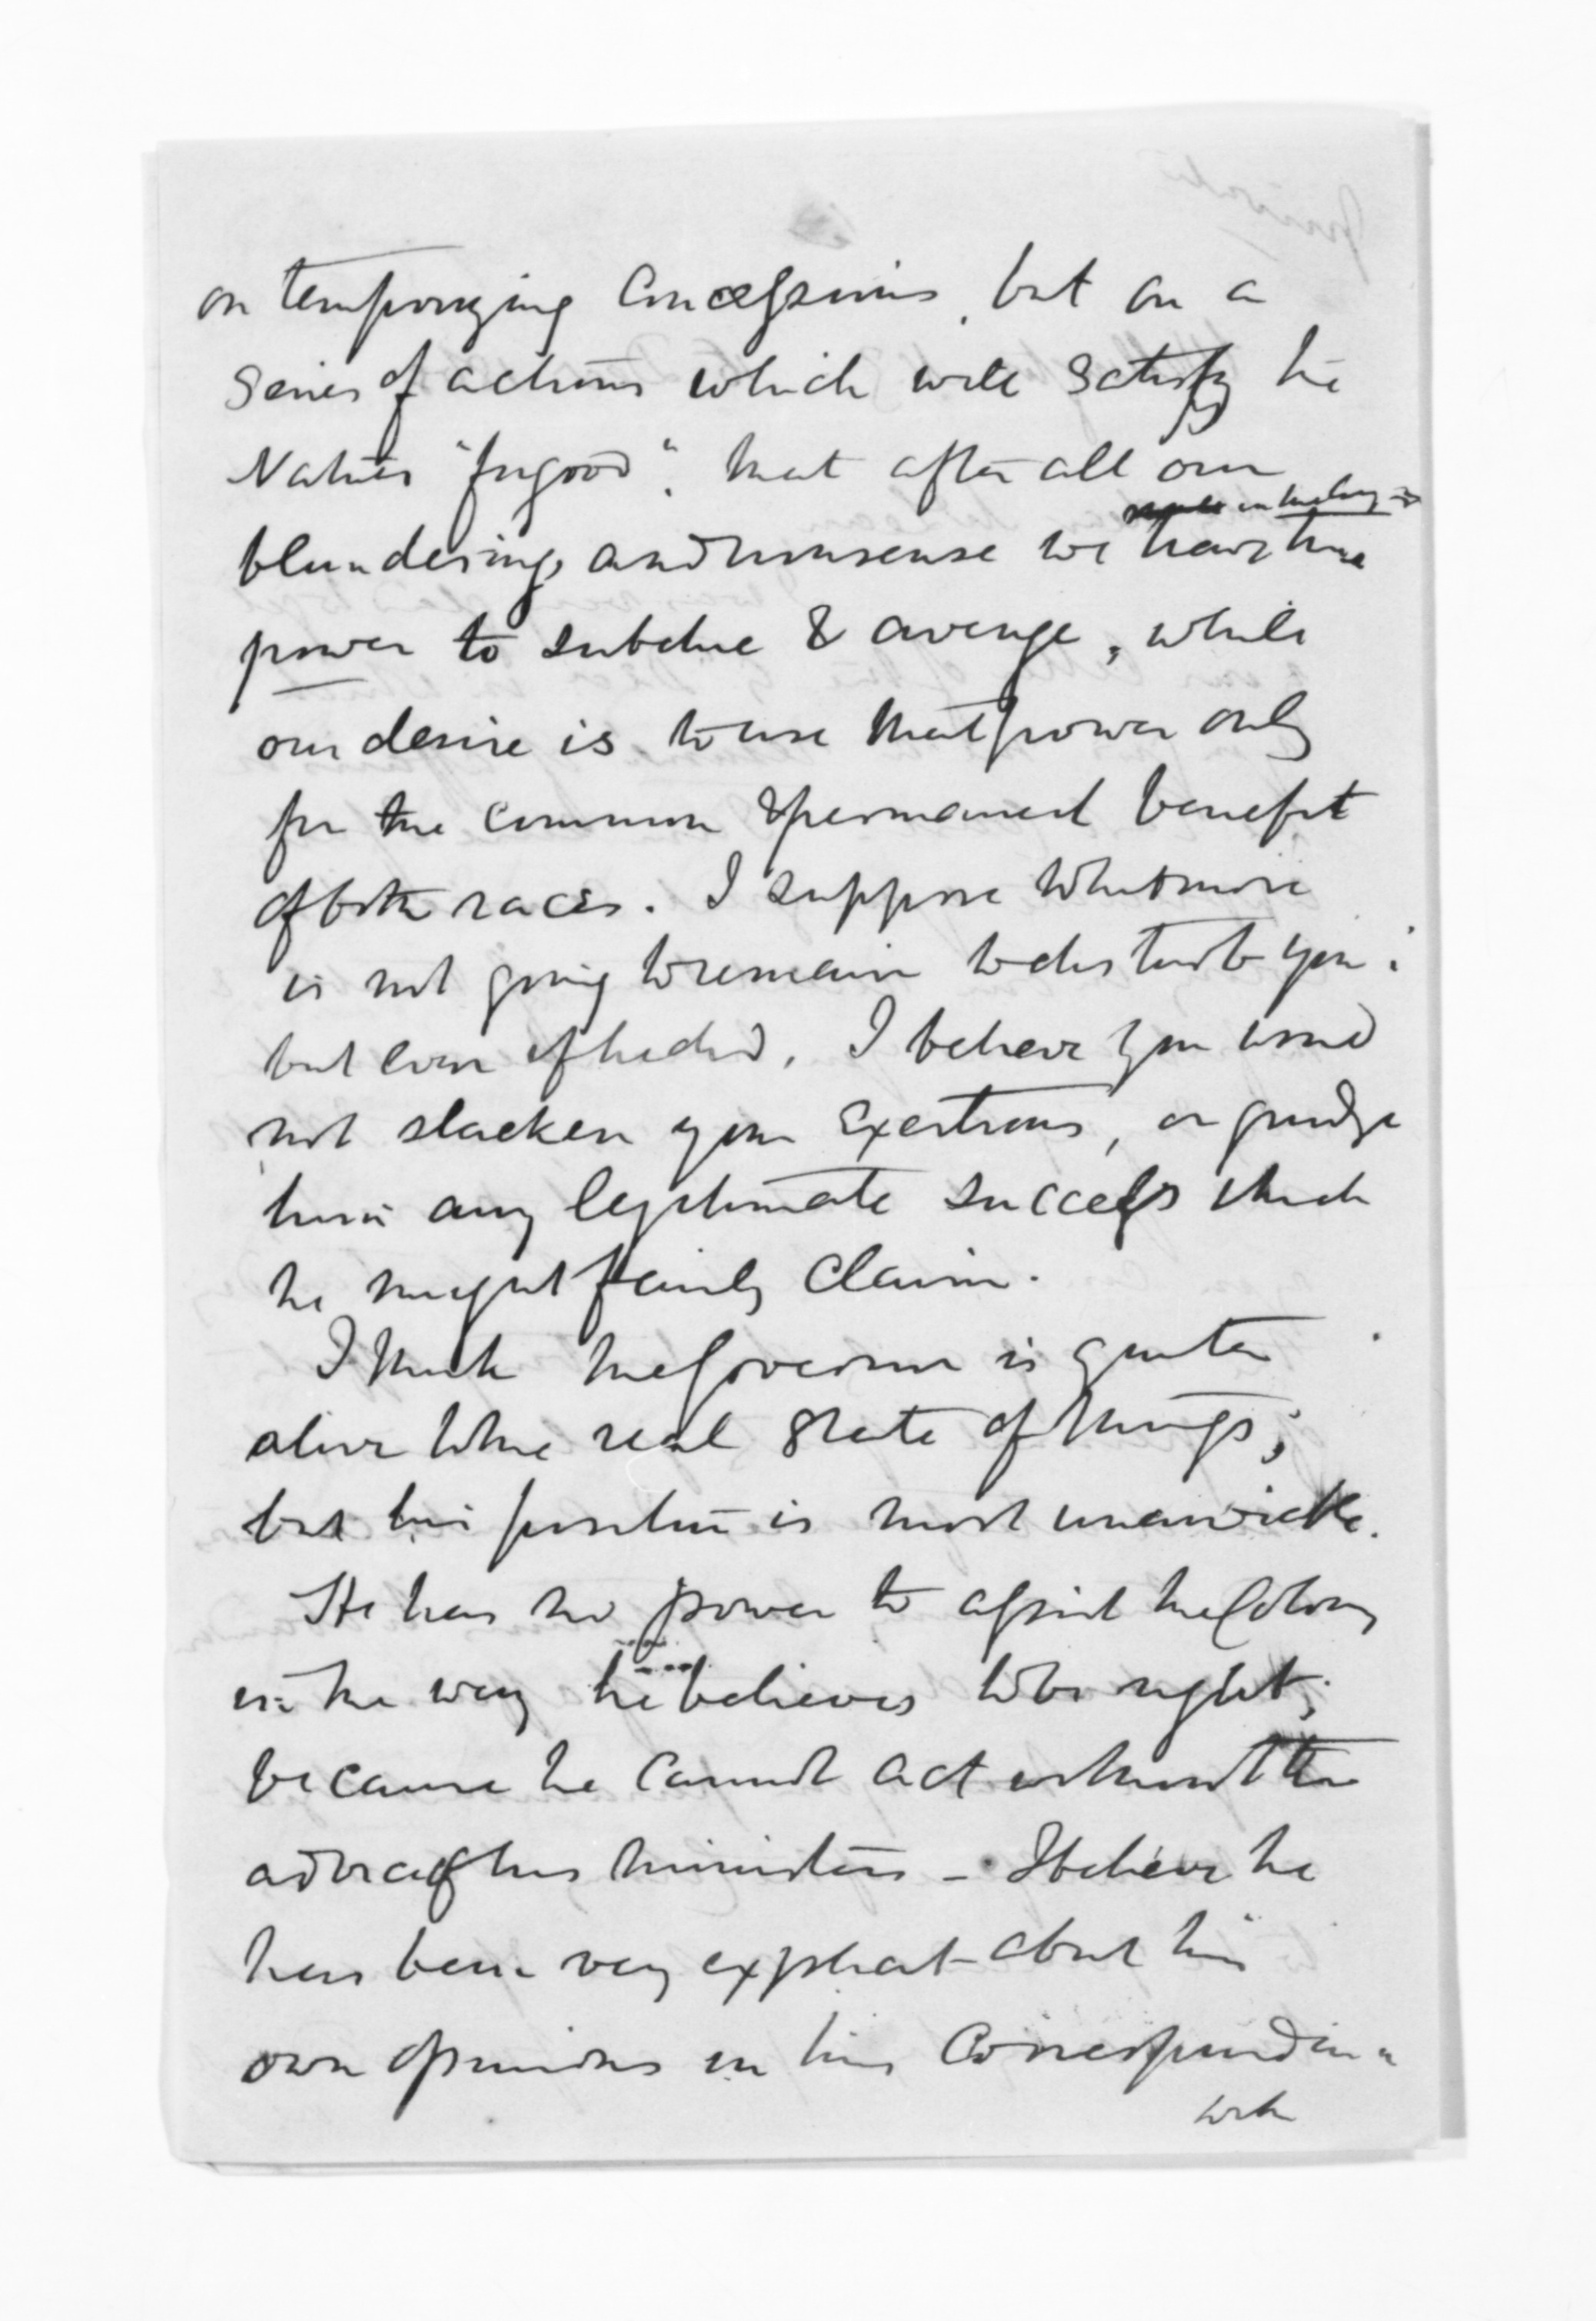 on temporizing concessions, but on a
series of actions which will satisfy the
Natives "for good", that after all our
in the long
blundering, and nonsense we have the
power to subdue & avenge, while
our desire is to use that power only
for the common & permanent benefit
of both races. I suppose Whitmore
is not going to remain to disturb you;
but even if he did, I believe you would
not slacken your exertions, or grudge
him any legitimate success which
he might fairly claim.
I think the Governor is quite
alive to the real state of things;
but his position is most unenviable.
He has no power to assist the Colony
in the way he believes to be right,
because he cannot act without the
advice of his ministers – I believe he
has been very explicit about his
own opinions in his correspondence
with